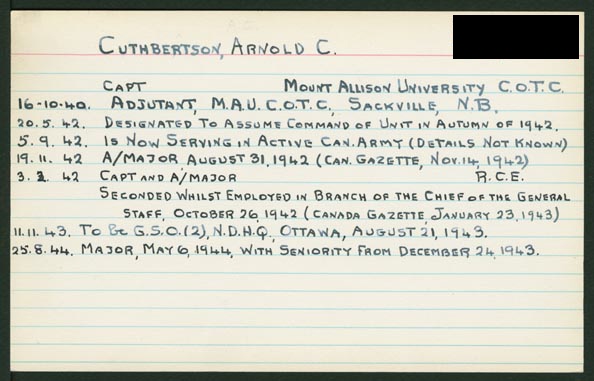 CUTHBERTSON, ARNOLD C.
CAPT MOUNT ALLISON UNIVERSITY C.O.T.C.
16-10-40. ADJUTANT, M.A.U. C.O.T.C, SACKVILLE, N.B.
20.5.42. DESIGNATED TO ASSUME COMMAND OF UNIT IN AUTUMN OF 1942.
5.9.42 IS NOW SERVING IN ACTIVE CAN. ARMY (DETAILS NOT KNOWN)
19.11.42 A/MAJOR AUGUST 31, 1942 (CAN. GAZETTE, NOV. 14, 1942)
3.2.42 CAPT AND A/MAJOR R.C.E.
SECONDED WHILST EMPLOYED IN BRANCH OF THE CHIEF OF THE GENERAL
STAFF, OCTOBER 26, 1942 (CANADA GAZETTE, JANUARY 23, 1943)
11.11.43. TO BE G.S.O.(2), N.D.H.Q., OTTAWA, AUGUST 21, 1943.
25.8.44. MAJOR, MAY 6, 1944, WITH SENIORITY FROM DECEMBER 24, 1943.